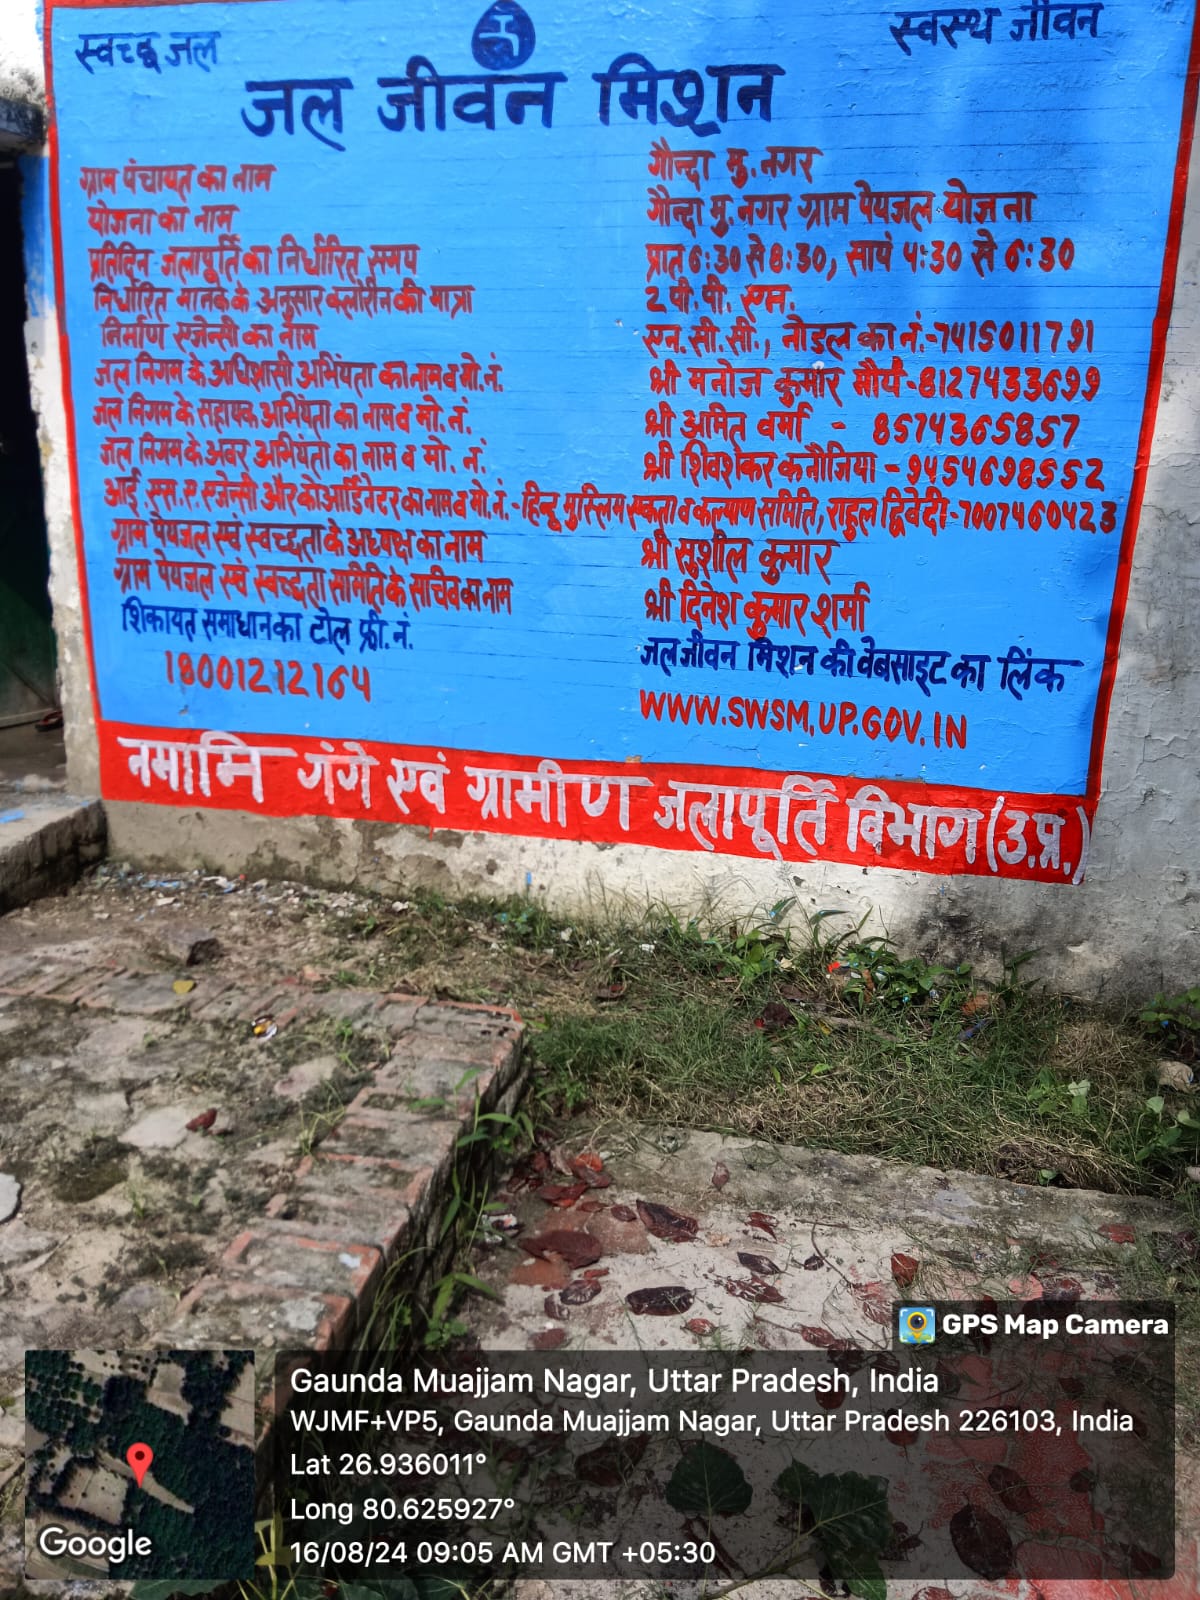 स्वच्छ जल
स्वस्थ जीवन
जल जीवन मिशन
ग्राम पंचायत का नाम गौन्दा मु. नगर
योजना का नाम गौन्दा मु. नगर ग्राम पेयजल योजना
प्रतिदिन जलापूर्ति का निर्धारित समय प्रात 6:30 से 8:30, सायं 4:30 से 6:30
निर्धारित मानक के अनुसार क्लोरीन की मात्रा 2 पी.पी. एम.
निर्माण एजेन्सी का नाम एन.सी.सी., नोडल का नं.-7415011791
जल निगम के अधिशासी अभियंता का नाम व मो.नं. श्री मनोज कुमार मौर्य-8127433699
जल निगम के सहायक अभियंता का नाम व मो. नं. श्री अमित वर्मा - 8574365857
जल निगम के अवर अभियंता का नाम व मो. नं. श्री शिवशंकर कनौजिया - 9454698552
आई.एस.ए. एजेन्सी और कोआर्डिनेटर का नाम व मो. नं.-हिन्दू मुस्लिम एकता व कल्याण समिति, राहुल द्विवेदी-7007460423
ग्राम पेयजल एवं स्वच्छता के अध्यक्ष का नाम श्री सुशील कुमार
ग्राम पेयजल एवं स्वच्छता समिति के सचिव का नाम श्री दिनेश कुमार शर्मा
शिकायत समाधान का टोल फ्री. नं. जल जीवन मिशन की वेबसाइट का लिंक
18001212164 WWW.SWSM.UP.GOV.IN
नमामि गंगे एवं ग्रामीण जलापूर्ति विभाग (उ.प्र.)
GPS Map Camera
Gaunda Muajjam Nagar, Uttar Pradesh, India
WJMF+VP5, Gaunda Muajjam Nagar, Uttar Pradesh 226103, India
Lat 26.936011°
Long 80.625927°
16/08/24 09:05 AM GMT +05:30
Google